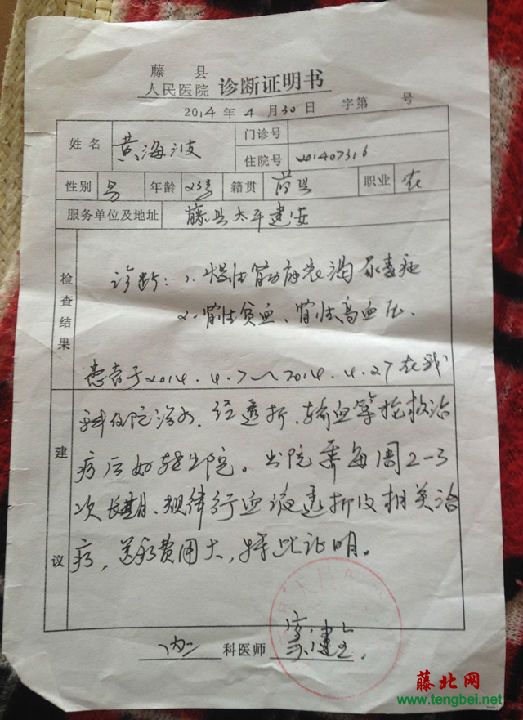 藤县
人民医院 诊断证明书
2014年4月30日 字第 号
姓名 黄海波 门诊号
住院号 201407316
性别 男 年龄 23岁 籍贯 职业 农
服务单位及地址 藤县太平建安
检查结果
诊断：1.慢性肾功能衰竭尿毒症
2.肾性贫血、肾性高血压.
患者于2014.4.7～2014.4.27在我
建议
科住院治疗、经透析、输血等抢救治
疗后好转出院。出院需每周2-3
次长期、规律行血液透析及相关治
疗，医药费用大，特此证明。
内 科医师
藤北网
www.tengbei.net